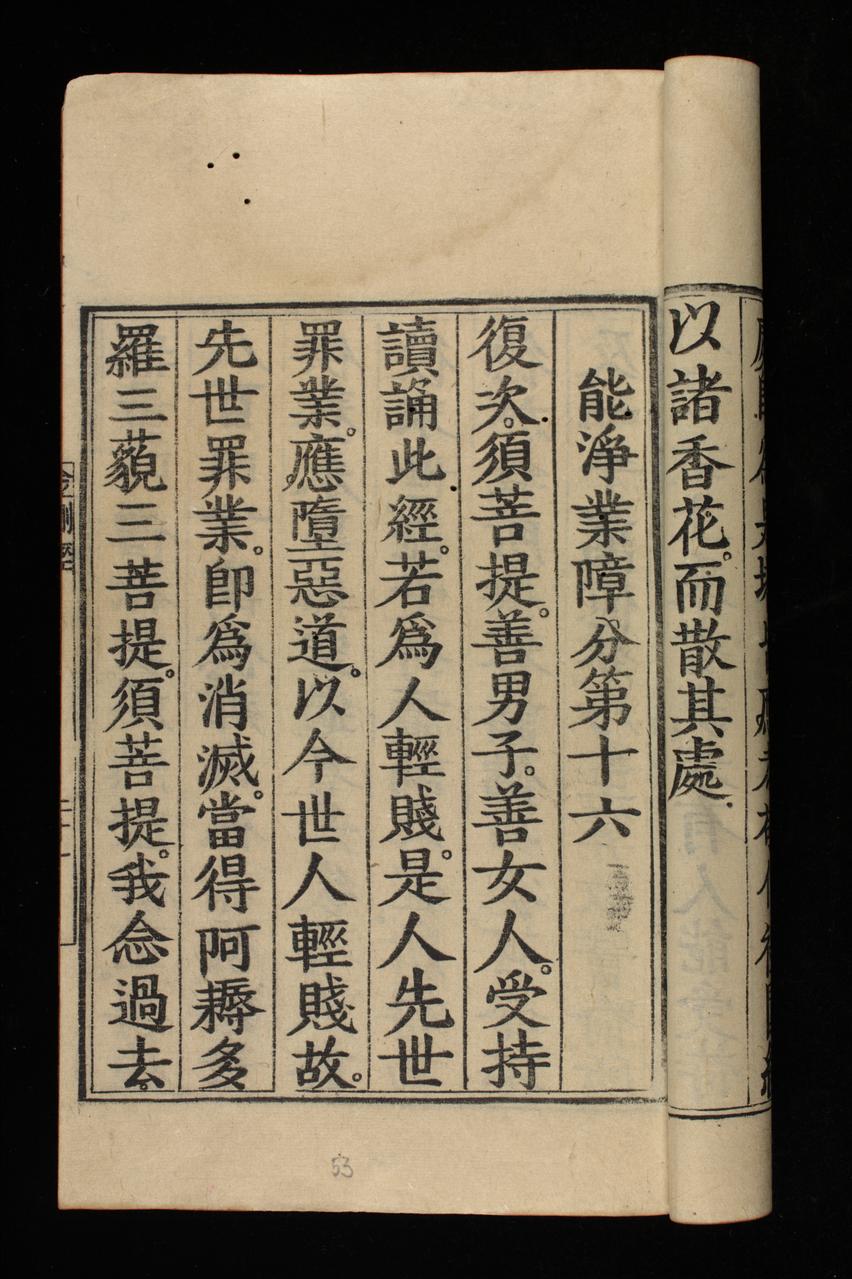 以諸香花。而散其處.
能淨業障分第十六
復次。須菩提。善男子。善女人。受持
讀誦此經。若爲人輕賤。是人先世
罪業。應墮惡道。以今世人輕賤故。
先世罪業。卽爲消滅。當得阿耨多
羅三藐三菩提。須菩提。我念過去。
金剛經
53